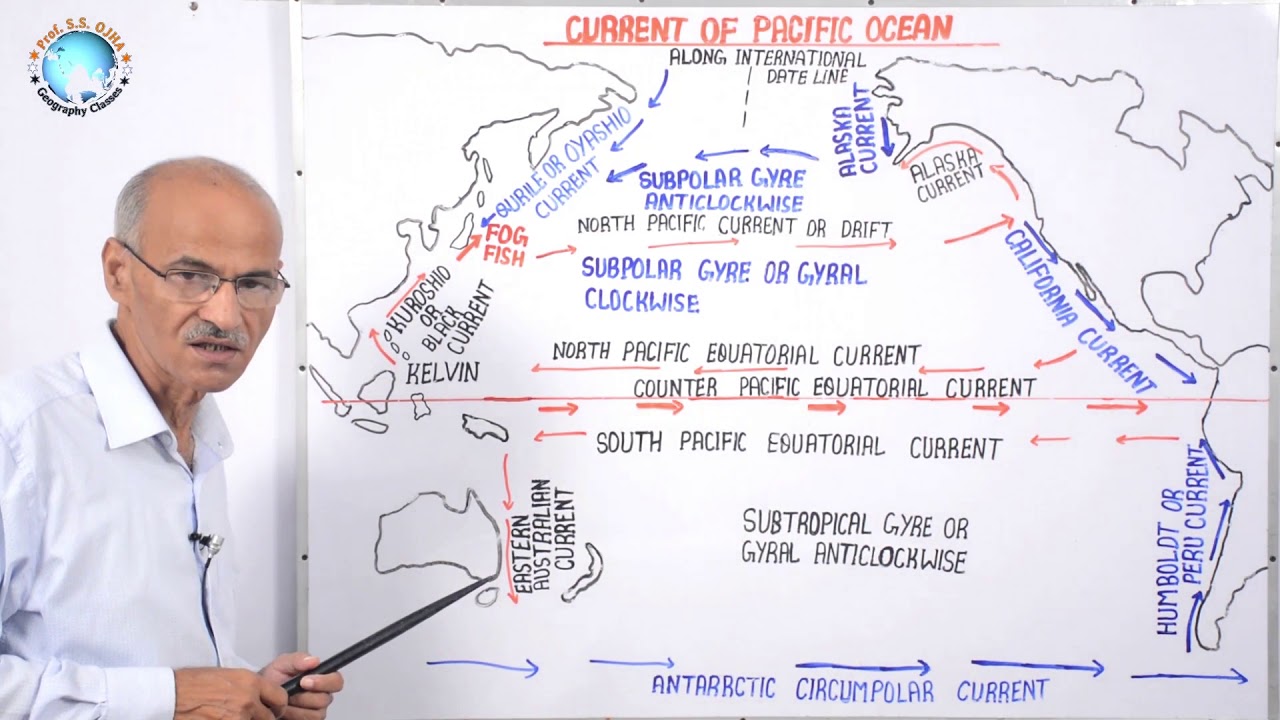 Prof. S.S. OJHA
Geography Classes
CURRENT OF PACIFIC OCEAN
ALONG INTERNATIONAL
DATE LINE
QURILE OR OYASHIO
CURRENT
ALASKA
CURRENT
ALASKA
CURRENT
SUBPOLAR GYRE
ANTICLOCKWISE
NORTH PACIFIC CURRENT OR DRIFT
FOG
FISH
SUBPOLAR GYRE OR GYRAL
CLOCKWISE
CALIFORNIA CURRENT
KUROSHIO
OR
BLACK
CURRENT
KELVIN
NORTH PACIFIC EQUATORIAL CURRENT
COUNTER PACIFIC EQUATORIAL CURRENT
SOUTH PACIFIC EQUATORIAL CURRENT
EASTERN
AUSTRALIAN
CURRENT
SUBTROPICAL GYRE OR
GYRAL ANTICLOCKWISE
HUMBOLDT OR
PERU CURRENT
ANTARRCTIC CIRCUMPOLAR CURRENT